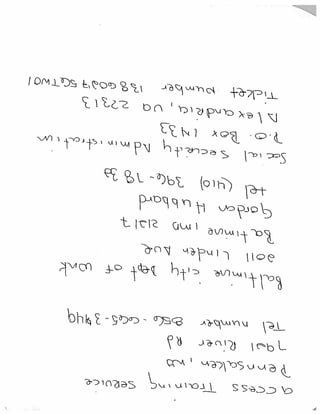 access Training service
Pennsaken, NJ
7901 River Rd
Tel number 856-665-3449
Baltimore city Dept of work
2011 Linden Ave
Baltimore MD 21217
Gordon Hubbard
tel (410) 396-7839
Social Security Administration
P.O. Box 1433
Alexandria, Va 22313
Ticket number